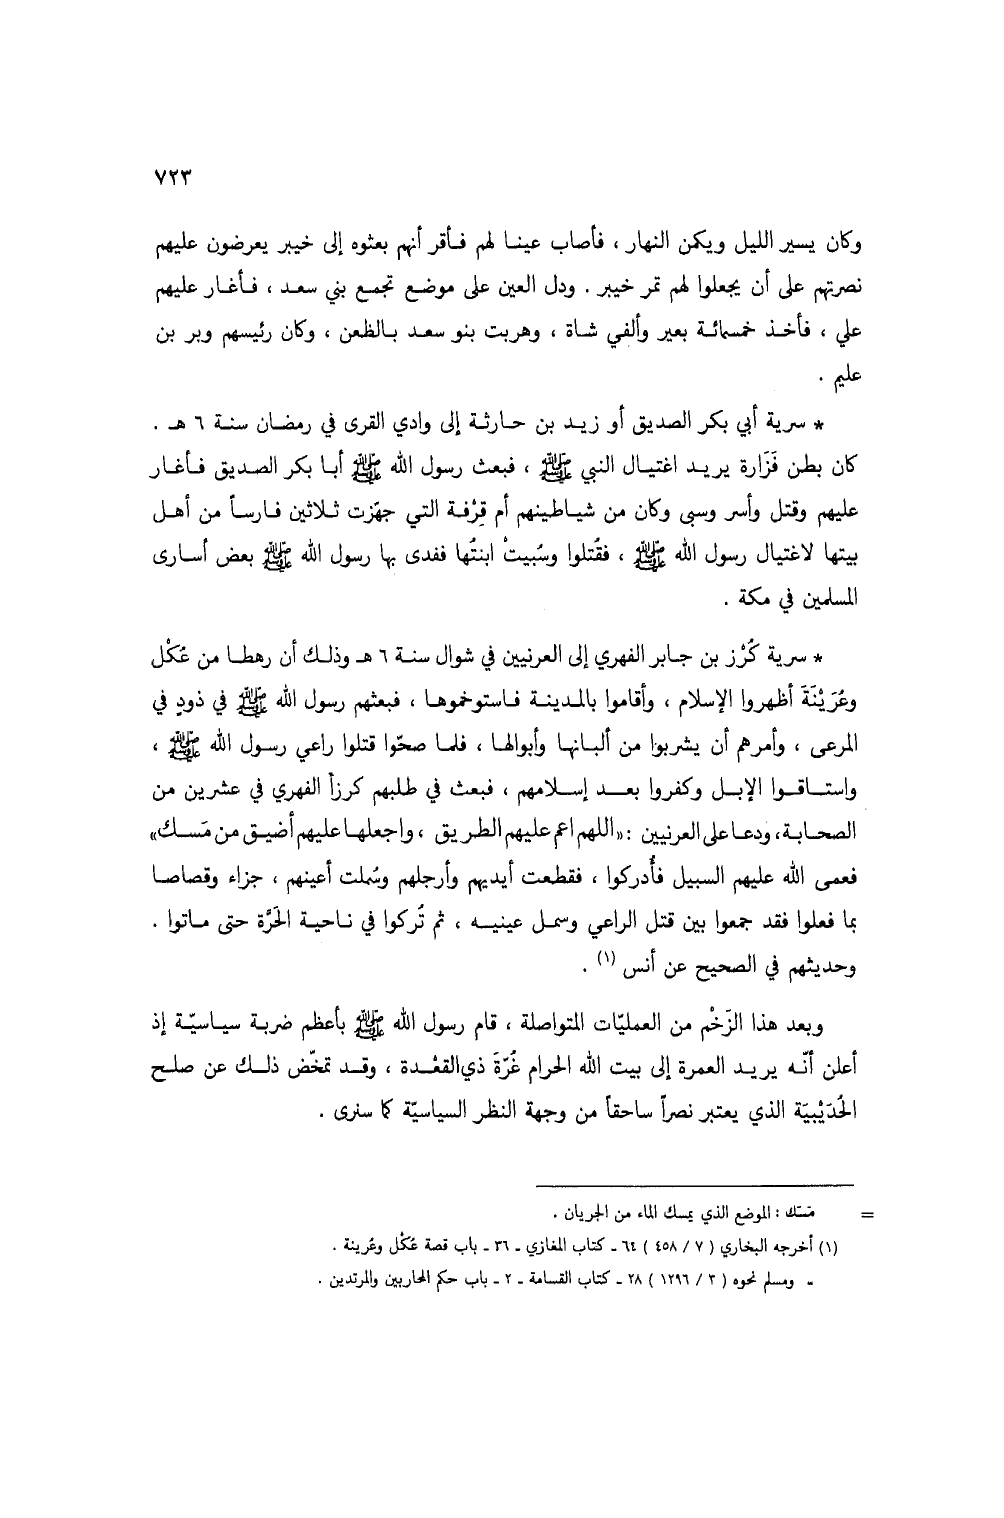 ٧٢٣
وكان يسير الليل ويكن النهار ، فأصاب عينا لهم فأقر أنهم بعثوه إلى خيبر يعرضون عليهم
نصرتهم على أن يجعلوا لهم تمر خيبر . ودل العين على موضع تجمع بني سعد ، فأغار عليهم
علي ، فأخذ خمسمائة بعير وألفي شاة ، وهربت بنو سعد بالظعن ، وكان رئيسهم وبر بن
عليم .
* سرية أبي بكر الصديق أو زيد بن حارثة إلى وادي القرى في رمضان سنة ٦ هـ .
كان بطن فَزَارة يريد اغتيال النبي ﷺ ، فبعث رسول الله ﷺ أبا بكر الصديق فأغار
عليهم وقتل وأسر وسبى وكان من شياطينهم أم قِرْفة التي جهّزت ثلاثين فارساً من أهل
بيتها لاغتيال رسول الله ﷺ ، فقُتلوا وسُبيتْ ابنتُها ففدى بها رسول الله ﷺ بعض أسارى
المسلمين في مكة .
* سرية كُرْز بن جابر الفهري إلى العرنيين في شوال سنة ٦ هـ وذلك أن رهطا من عُكْل
وعُرَيْنَةَ أظهروا الإسلام ، وأقاموا بالمدينة فاستوخموها ، فبعثهم رسول الله ﷺ في ذودٍ في
المرعى ، وأمرهم أن يشربوا من ألبانها وأبوالها ، فلما صحّوا قتلوا راعي رسول الله ﷺ ،
واستاقوا الإبل وكفروا بعد إسلامهم ، فبعث في طلبهم كرزاً الفهري في عشرين من
الصحابة، ودعا على العرنيين : «اللهم اعم عليهم الطريق ، واجعلها عليهم أضيق من مَسَك»
فعمى الله عليهم السبيل فأُدركوا ، فقطعت أيديهم وأرجلهم وسُملت أعينهم ، جزاء وقصاصا
بما فعلوا فقد جمعوا بين قتل الراعي وسمل عينيه ، ثم تُركوا في ناحية الحَرَّة حتى ماتوا .
وحديثهم في الصحيح عن أنس (١) .
وبعد هذا الزَخْم من العمليّات المتواصلة ، قام رسول الله ﷺ بأعظم ضربة سياسيّة إذ
أعلن أنّه يريد العمرة إلى بيت الله الحرام غُرّةَ ذي القعْدة ، وقد تمخّض ذلك عن صلح
الحُدَيْبيَة الذي يعتبر نصراً ساحقاً من وجهة النظر السياسيّة كما سنرى .
= مَسَك : الموضع الذي يمسك الماء من الجريان .
(١) أخرجه البخاري ( ٧ / ٤٥٨ ) ٦٤ ـ كتاب المغازي ـ ٣٦ ـ باب قصة عُكْل وعُرينة .
ـ ومسلم نحوه ( ٣ / ١٢٩٦ ) ٢٨ ـ كتاب القسامة ـ ٢ ـ باب حكم المحاربين والمرتدين .